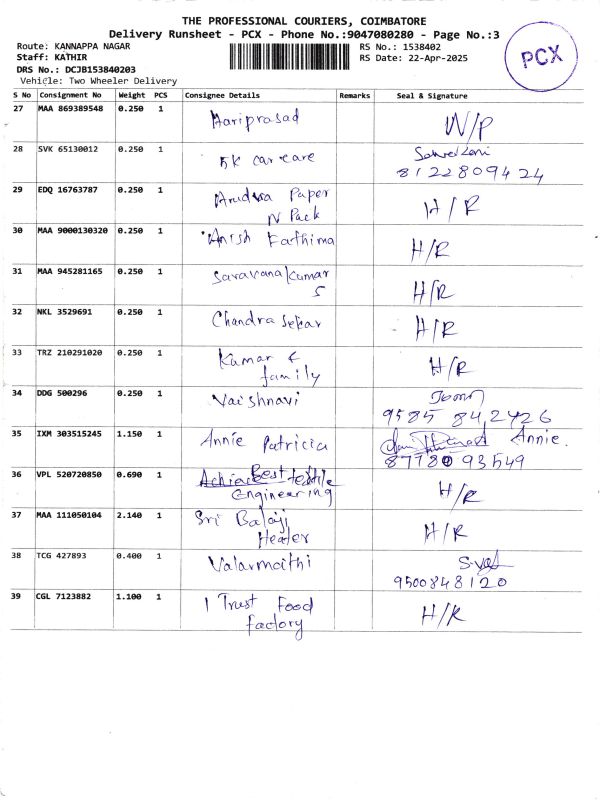 THE PROFESSIONAL COURIERS, COIMBATORE
Delivery Runsheet - PCX - Phone No.:9047080280 - Page No.:3
Route: KANNAPPA NAGAR
Staff: KATHIR
DRS No.: DCJB153840203
Vehicle: Two Wheeler Delivery
RS No.: 1538402
RS Date: 22-Apr-2025
PCX
S No Consignment No Weight PCS Consignee Details Remarks Seal & Signature
27 MAA 869389548 0.250 1 Hariprasad W/P
28 SVK 65130012 0.250 1 5K car care
8122809424
29 EDQ 16763787 0.250 1 Arudra Paper H/R
N Pack
30 MAA 9000130320 0.250 1 Anish Fathima H/R
31 MAA 945281165 0.250 1 Saravanakumar H/R
S
32 NKL 3529691 0.250 1 Chandra Sekar H/R
33 TRZ 210291020 0.250 1 Kumar & H/R
family
34 DDG 500296 0.250 1 Vaishnavi
9585 842426
35 IXM 303515245 1.150 1 Annie Patricia Annie.
8778093549
36 VPL 520720850 0.690 1 Best textile H/R
Engineering
37 MAA 111050104 2.140 1 Sri Balaji H/R
Heater
38 TCG 427893 0.400 1 Valarmathi
9500848120
39 CGL 7123882 1.100 1 I Trust Food H/R
factory